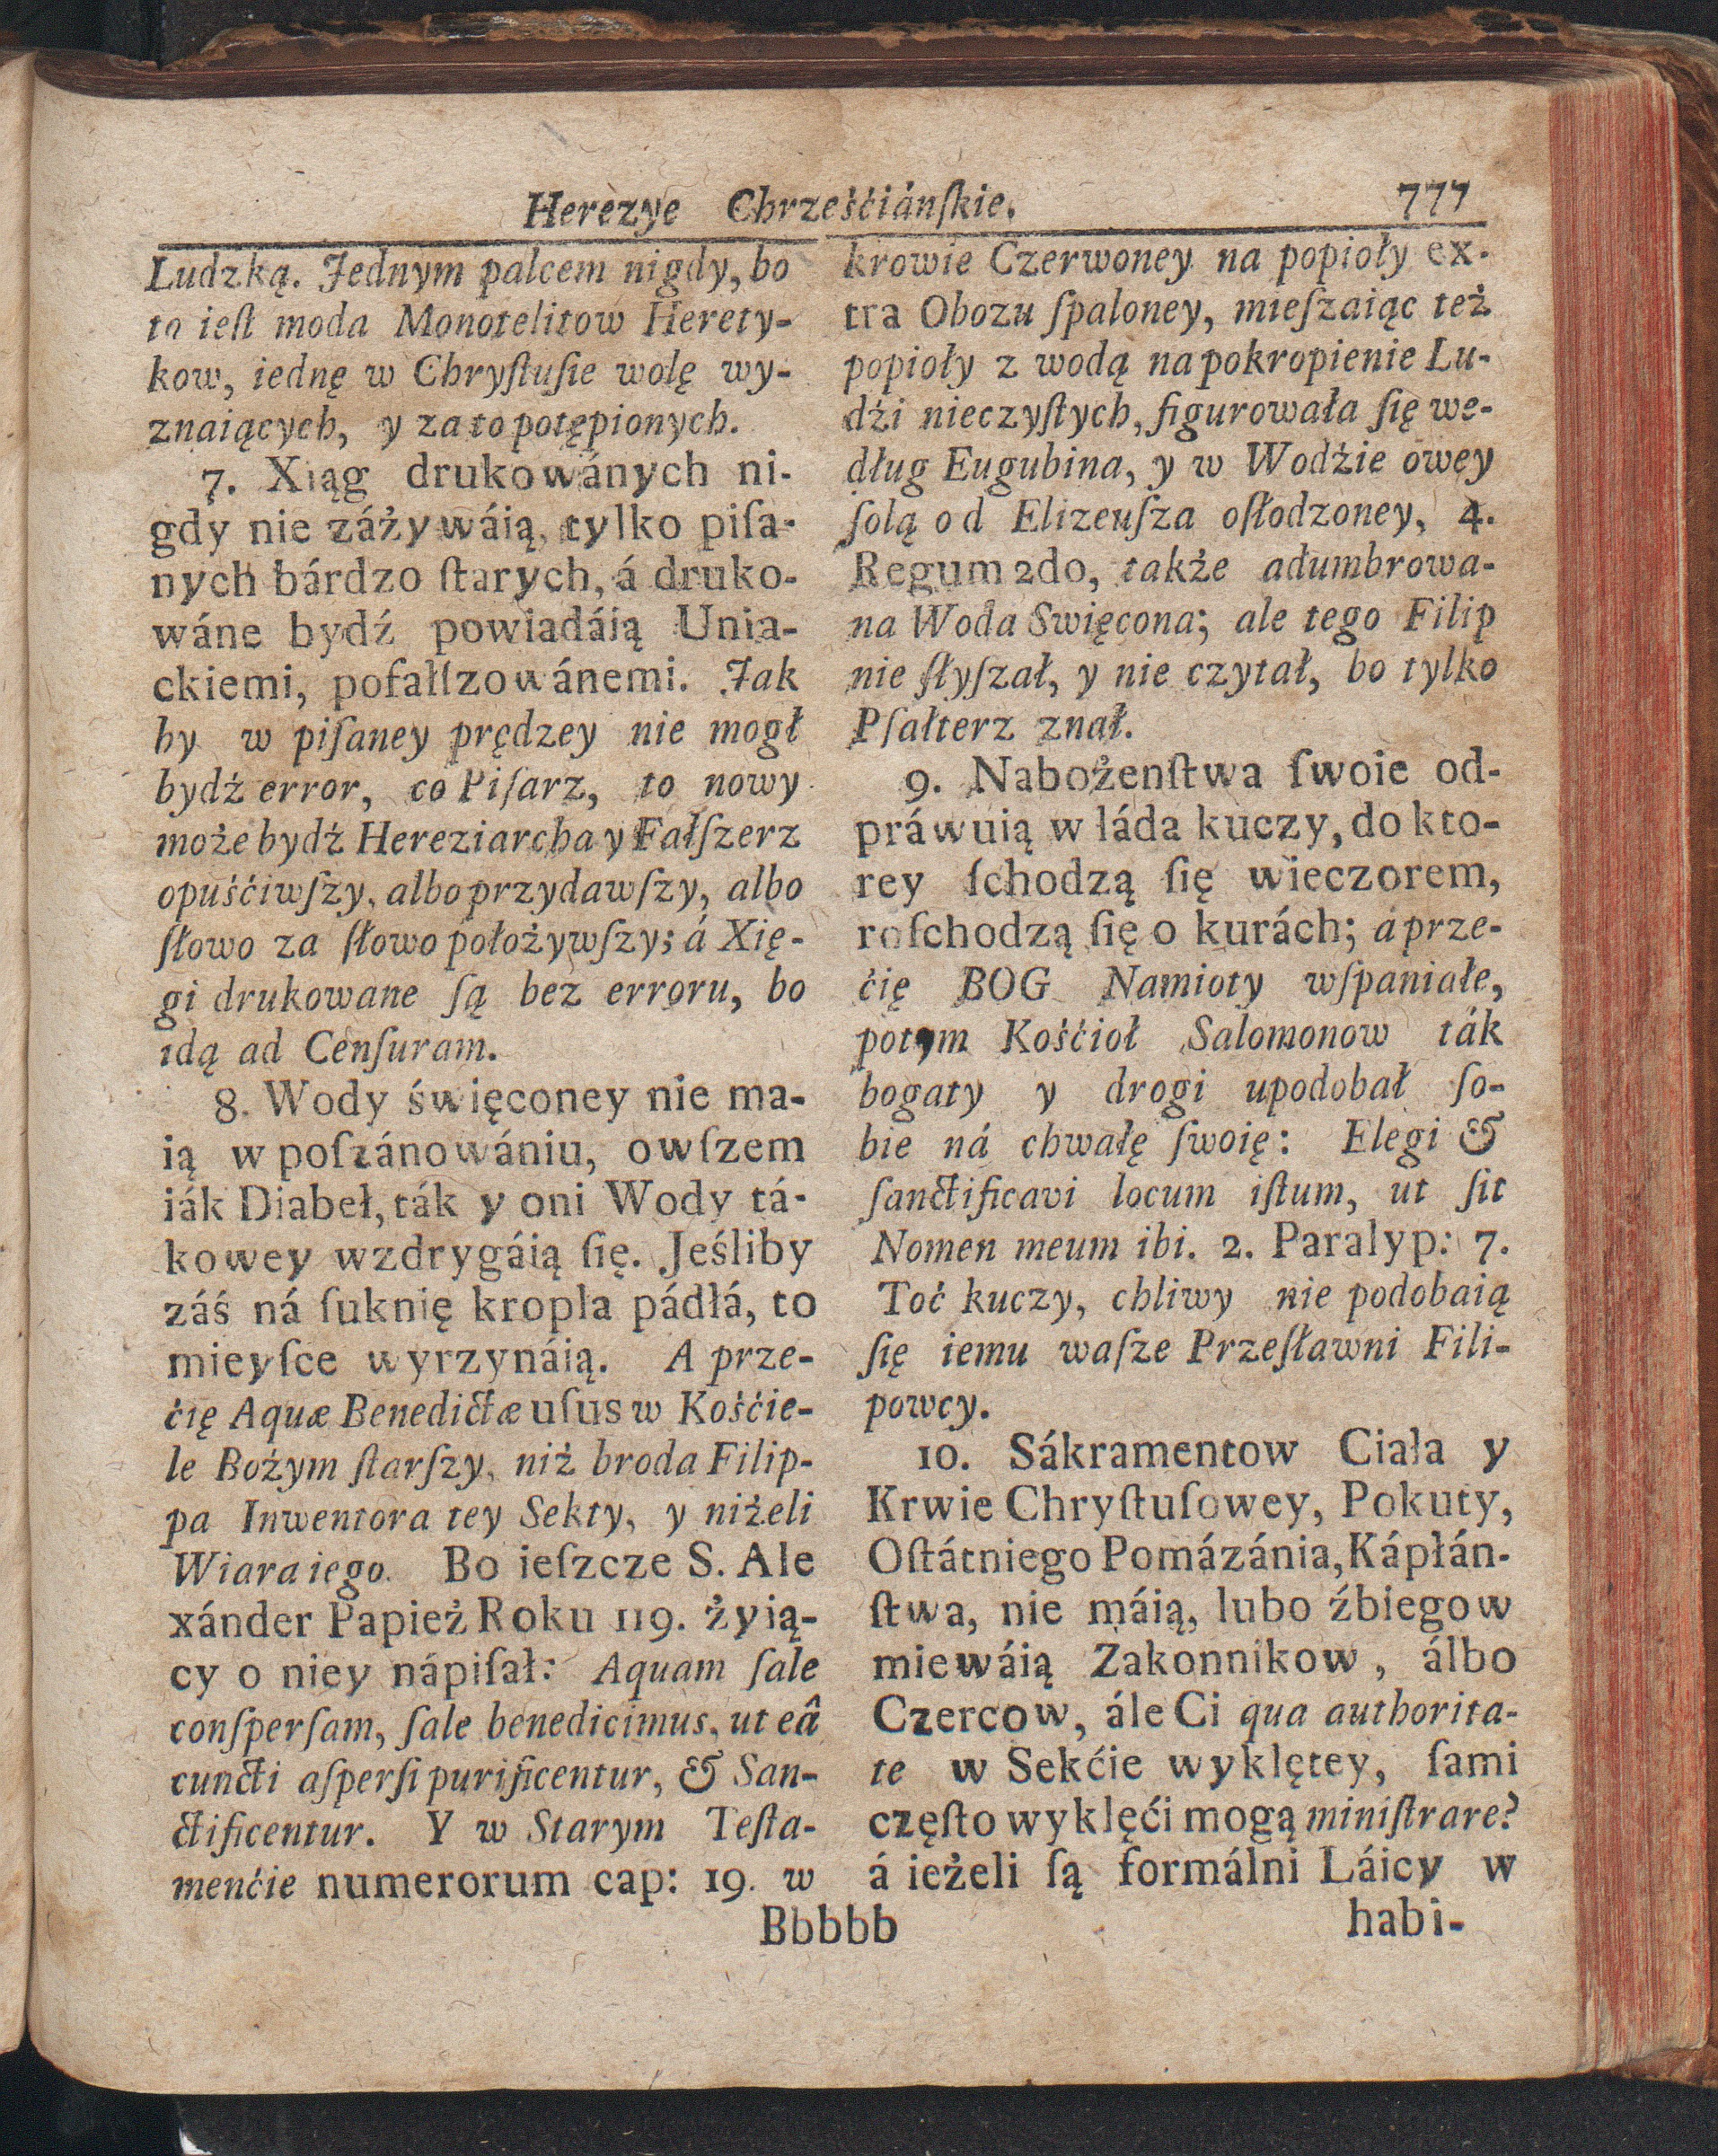 Herezye Chrześćiánſkie. 777
Ludzką. Jednym palcem nigdy, bo
to ieſt moda Monotelitow Herety-
kow, iednę w Chryſtuſie wolę wy-
znaiących, y za to potępionych.
7. Xiąg drukowánych ni-
gdy nie záżywáią, tylko piſa-
nych bárdzo ſtarych, á druko-
wáne bydź powiadáią Unia-
ckiemi, pofałſzowánemi. Jak
by w piſaney prędzey nie mogł
bydź error, co Piſarz, to nowy
może bydź Hereziarcha y Fałſzerz
opuśćiwſzy, albo przydawſzy, albo
ſłowo za ſłowo położywſzy; á Xię-
gi drukowane ſą bez erroru, bo
idą ad Cenſuram.
8. Wody święconey nie ma-
ią w poſzánowániu, owſzem
iák Diabeł, ták y oni Wody tá-
kowey wzdrygáią ſię. Jeśliby
záś ná ſuknię kropla pádłá, to
mieyſce wyrzynáią. A prze-
ćię Aquæ Benedictæ uſus w Kośćie-
le Bożym ſtarſzy, niż broda Filip-
pa Inwentora tey Sekty, y niżeli
Wiara iego. Bo ieſzcze S. Ale
xánder Papież Roku 119. żyią-
cy o niey nápiſał: Aquam ſale
conſperſam, ſale benedicimus, ut eâ
cuncti aſperſi purificentur, & San-
ctificentur. Y w Starym Teſta-
menćie numerorum cap: 19. w
krowie Czerwoney na popioły ex-
tra Obozu ſpaloney, mieſzaiąc też
popioły z wodą na pokropienie Lu-
dźi nieczyſtych, figurowała ſię we-
dług Eugubina, y w Wodźie owey
ſolą od Elizeuſza oſłodzoney, 4.
Regum 2do, także adumbrowa-
na Woda Swięcona; ale tego Filip
nie ſłyſzał, y nie czytał, bo tylko
Pſałterz znał.
9. Nabożenſtwa ſwoie od-
práwuią w láda kuczy, do kto-
rey ſchodzą ſię wieczorem,
roſchodzą ſię o kurách; á prze-
ćię BOG Namioty wſpaniałe,
potym Kośćioł Salomonow ták
bogaty y drogi upodobał ſo-
bie ná chwałę ſwoię: Elegi &
ſanctificavi locum iſtum, ut ſit
Nomen meum ibi. 2. Paralyp: 7.
Toć kuczy, chliwy nie podobaią
ſię iemu waſze Przeſławni Fili-
powcy.
10. Sákramentow Ciała y
Krwie Chryſtuſowey, Pokuty,
Oſtátniego Pomázánia, Kápłán-
ſtwa, nie máią, lubo źbiegow
miewáią Zakonnikow, álbo
Czercow, ále Ci qua authorita-
te w Sekćie wyklętey, ſami
częſto wyklęći mogą miniſtrare?
á ieżeli ſą formálni Láicy w
Bbbbb habi-